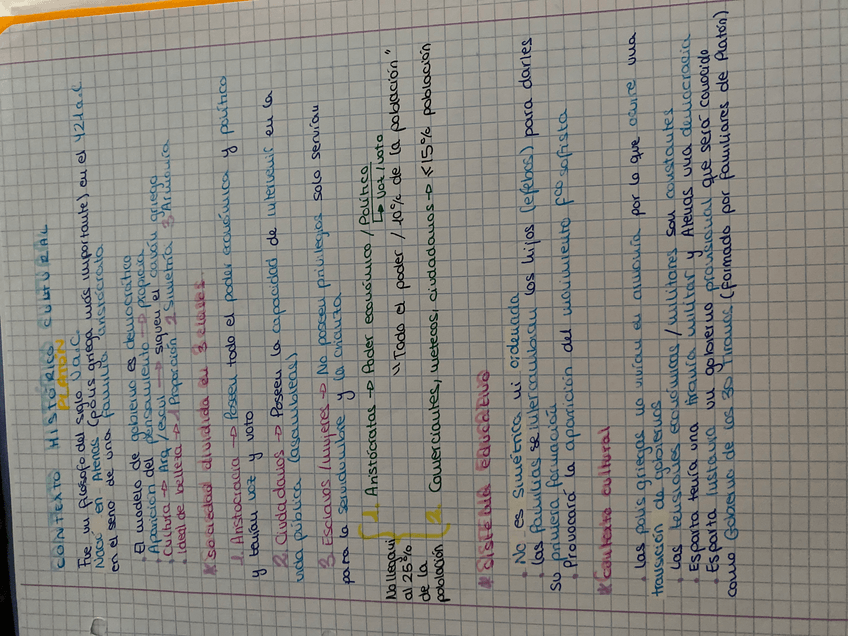 CONTEXTO HISTÓRICO CULTURAL
PLATÓN
Fue un filósofo del siglo V a.C.
Nació en Atenas (polis griega más importante) en el 421 a.C
en el seno de una familia aristócrata.
• El modelo de gobierno es democrático
• Aparición del pensamiento → propicia
• Cultura → Arq/escul → siguen el canón griego
• Ideal de belleza → 1 Proporción 2 Simetría 3 Armonía
* Sociedad dividida en 3 clases
1. Aristocracia → Poseen todo el poder económico y político
y tenían voz y voto
2. Ciudadanos → Poseen la capacidad de intervenir en la
vida pública (asambleas)
3. Esclavos/mujeres → No poseen privilegios solo servían
para la servidumbre y la crianza
No llegan al 25% de la población
1. Aristócratas → Poder económico / Político
→ Voz/voto
"Todo el poder / 10% de la población"
2. Comerciantes, metecos, ciudadanos → <15% población
* SISTEMA EDUCATIVO
• No es simétrica ni ordenada
• Las familias se intercambian los hijos (efebos) para darles
su primera formación
• Provocará la aparición del movimiento fco sofista
* Contexto cultural
• Las polis griegas no vivían en armonía por lo que ocurre una
transición de gobiernos
• Las tensiones económicas/militares son constantes
• Esparta tenía una tiranía militar y Atenas una democracia
• Esparta instaura un gobierno provisional que será conocido
como Gobierno de los 30 Tiranos (formado por familiares de Platón)